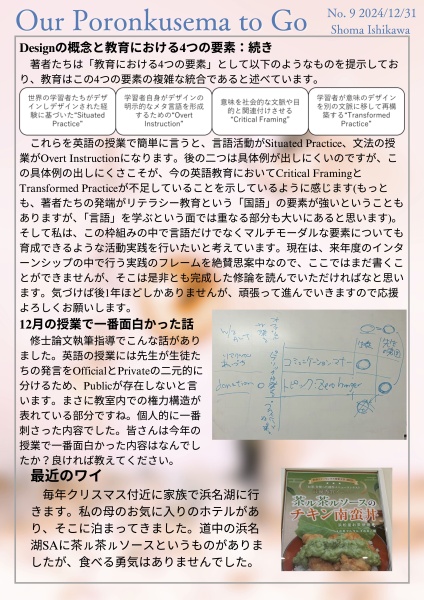 Our Poronkusema to Go
No. 9 2024/12/31
Shoma Ishikawa
Designの概念と教育における4つの要素：続き
著者たちは「教育における4つの要素」として以下のようなものを提示してお
り、教育はこの4つの要素の複雑な統合であると述べています。
世界の学習者たちがデザ
インしデザインされた経
験に基づいた"Situated
Practice"
学習者自身がデザインの
明示的なメタ言語を形成
するための"Overt
Instruction"
意味を社会的な文脈や目
的と関連付けさせる
"Critical Framing"
学習者が意味のデザイン
を別の文脈に移して再構
築する"Transformed
Practice"
これらを英語の授業で簡単に言うと、言語活動がSituated Practice、文法の授
業がOvert Instructionになります。後の二つは具体例が出しにくいのですが、こ
の具体例の出しにくさこそが、今の英語教育においてCritical Framingと
Transformed Practiceが不足していることを示しているように感じます(もっと
も、著者たちの発端がリテラシー教育という「国語」の要素が強いということも
ありますが、「言語」を学ぶという面では重なる部分も大いにあると思います)。
そして私は、この枠組みの中で言語だけでなくマルチモーダルな要素についても
育成できるような活動実践を行いたいと考えています。現在は、来年度のインタ
ーンシップの中で行う実践のフレームを絶賛思案中なので、ここではまだ書くこ
とができませんが、そこは是非とも完成した修論を読んでいただければなと思い
ます。気づけば後1年ほどしかありませんが、頑張って進んでいきますので応援
よろしくお願いします。
12月の授業で一番面白かった話
修士論文執筆指導でこんな話があり
ました。英語の授業には先生が生徒た
ちの発言をOfficialとPrivateの二元的に
分けるため、Publicが存在しないと言
います。まさに教室内での権力構造が
表れている部分ですね。個人的に一番
刺さった内容でした。皆さんは今年の
授業で一番面白かった内容はなんでし
たか？良ければ教えてください。
コミュニケーションマナー
最近のワイ
毎年クリスマス付近に家族で浜名湖に行
きます。私の母のお気に入りのホテルがあ
り、そこに泊まってきました。道中の浜名
湖SAに茶ル茶ルソースというものがありま
したが、食べる勇気はありませんでした。
茶ル茶ルソースの
チキン南蛮丼